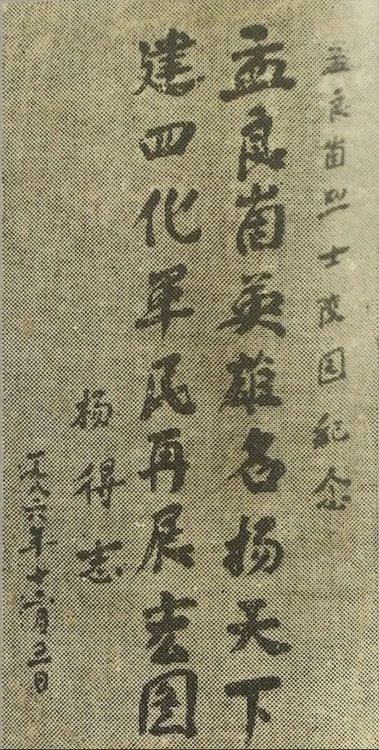 孟良崮烈士陵园纪念
孟良崮英雄名扬天下
建四化军民再展宏图
杨得志
一九八六年十二月三日